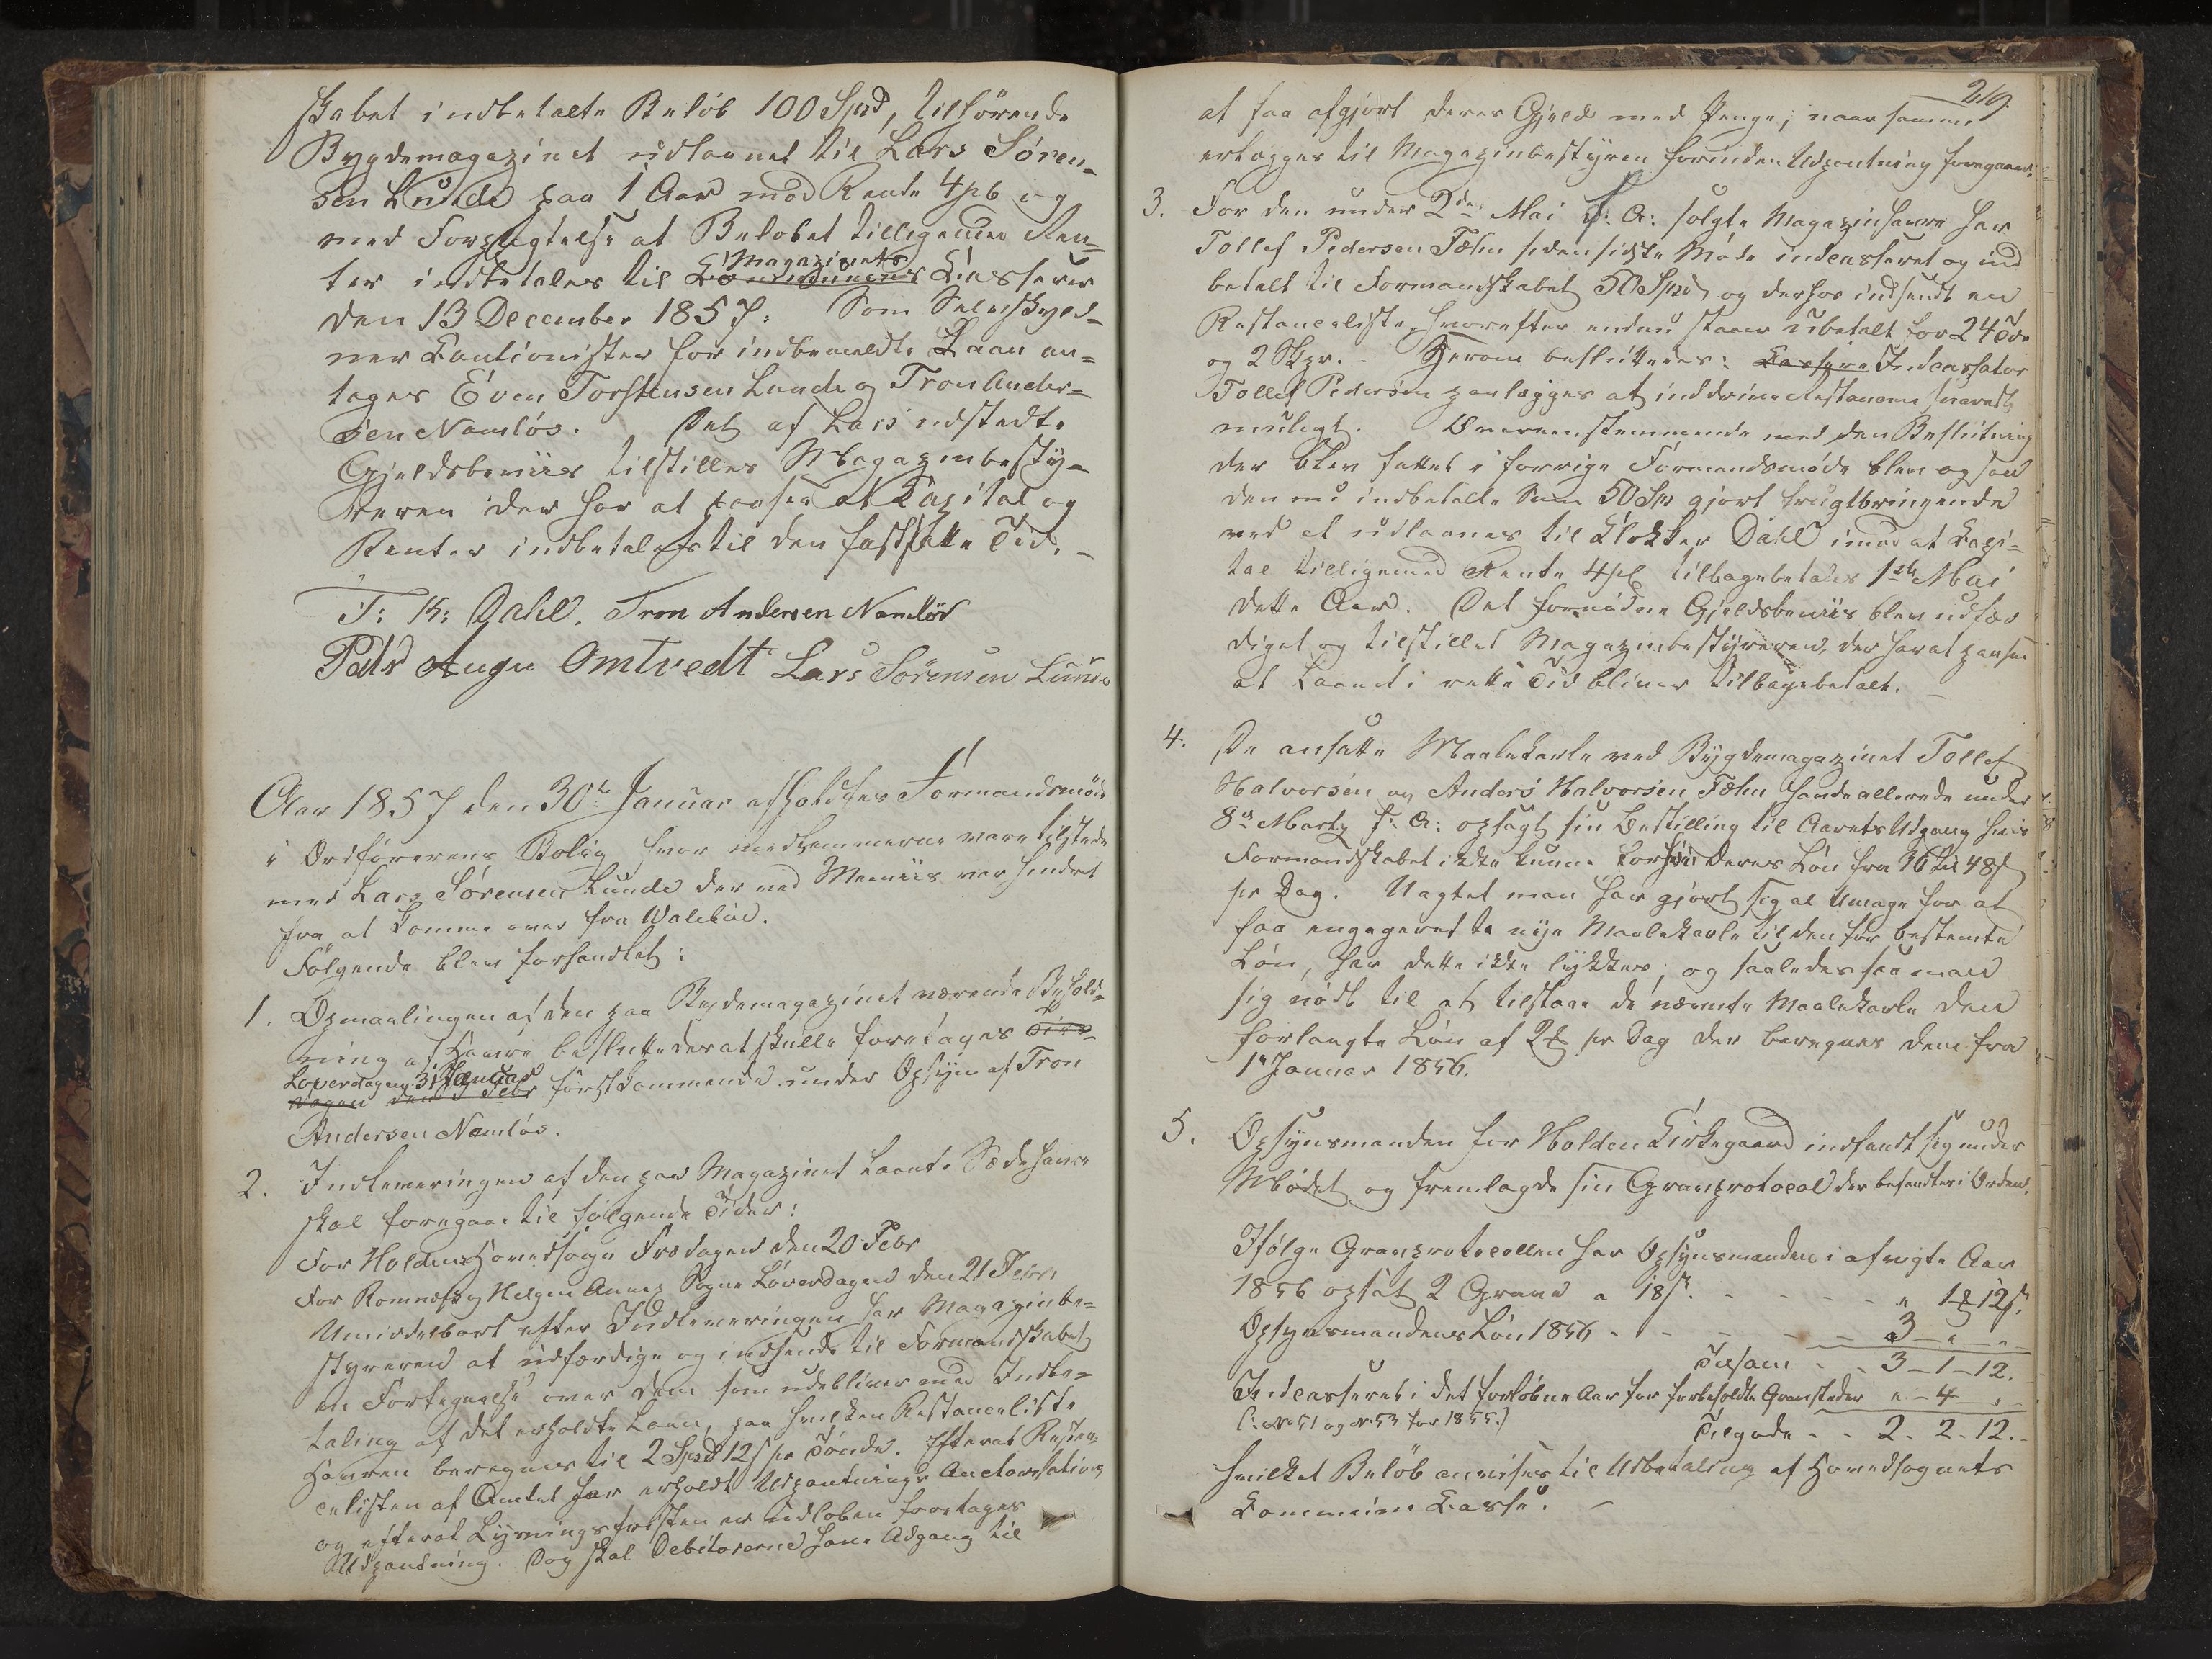 skabet indbetalte Beløb 100 Spd, tilhørende
Bygdemagazinet udlaanet til Lars Søren-
sen Lunde paa 1 Aar mod Rente 4 pC og
med Forpligtelse at Beløbet tilligemed Ren-
ter indbetales til Communens Magazinets Casserer
den 13 December 1857. Som Selvskyld-
ner Cautionister for indbemeldte Laan an-
tages Even Torstensen Lunde og Tron Ander-
sen Namløs. Det af Lars udstedte
Gjeldsbeviis tilstilles Magazinbesty-
reren der har at paasee at Capital og
Renter indbetales til den fastsatte Tid. -
T: K: Dahl. Tron Andersen Namløs
Peder Augu Omtvedt Lars Sørensen Lunde
Aar 1857 den 30te Januar afholdtes Formandsmøde
i Ordførerens Bolig hvor medlemmerne vare tilstede
med Lars Sørensen Lunde der ved Meniis var hindret
fra at komme over fra Walebøe.
Følgende blev forhandlet:
1. Opmaalingen af den paa Bydemagazinet værende Behold-
ning af Havre besluttedes at skulle foretages Tirs-
dagen den 3 Febr Løverdagen 31 Januar førstkommende under Opsyn af Tron
Andersen Namløs.
2. Indleveringen af den paa Magazinet laante Sædehavre
skal foregaae til følgende Tider:
For Holdens Hovedsogn Fredagen den 20 Febr
For Romnæs og Helgen Annex Sogne Løverdagen den 21 Febr.
Umiddelbart efter Indleveringen har Magazinbe-
styreren at udfærdige og indsende til Formandskabet
en Fortegnelse over dem som udebliver med Indbe-
taling af det erholdte Laan, paa hvilken Restanceliste
Havren beregnes til 2 Spd 12 s pr Tønde. Efterat Restan-
celisten af Amtet har erholdt Udpantnings Auctorisation
og efterat Lysningsfristen er udløben foretages
Udpantning. Dog skal Debitorerne have Adgang til
219.
at faa afgjort deres Gjeld med Penge, naar samme
erlægges til Magazinbestyreren forinden Udpantning foregaaer.
3. For den under 2den Mai f: A: solgte Magazinhavre har
Tollef Pedersen Fæhn siden sidste Møde indcasseret og ind
betalt til Formandskabet 50 Spd og derhos indsendt en
Restanceliste, hvorefter endnu staaer ubetalt for 24 Tdr
og 2 Skpr. - Herom besluttedes: Incassator
Tollef Pedersen paalægges at inddrive Restancerne snarest
muligt. Overeensstemmende med den Beslutning
der blev fattet i forrige Formandsmøde blev ogsaa
den nu indbetalte Sum 50 Spd gjort frugtbringende
ved at udlaanes til Klokker Dahl imod at Capi-
tal tilligemed Rente 4 pC tilbagebetales 1ste Mai
dette Aar. Det fornødne Gjeldsbeviis blev udfær
diget og tilstillet Magazinbestyreren, der har at paasee
at Laanet i rette Tid bliver tilbagebetalt. -
4. De ansatte Maalekarle ved Bygdemagazinet Tollef
Halvorsen og Anders Halvorsen Fæhn havde allerede under
8de Marts f: A: opsagt sin Bestilling til Aarets Udgang hvis
Formandskabet ikke kunne forhøie deres Løn fra 36 til 48 s
pr Dag. Uagtet man har gjort sig al Umage for at
faa engageret to nye Maalekarle til den før bestemte
Løn, har dette ikke lykkes, og saaledes saa man
sig nødt til at tilstaae de nævnte Maalekarle den
forlangte Løn af 2 pr Dag der beregnes dem fra
1e Januar 1856.
5. Opsynsmanden for Holden Kirkegaard indfandt sig under
Mødet og fremlagde sin Gravprotocol der befandtes i Orden.
Ifølge Gravprotocollen har Opsynsmanden i afvigte Aar
1856 opsat 2 Grave a 18 s. - - - - - " 1 12 s.
Opsynsmandens Løn 1856 - - - - - 3 - " - "
Tilsam - - 3 - 1 - 12.
Indcasseret i det forløbne Aar for forbeholdte Gravsteder " - 4 - "
(: No 51 og No 53 for 1855.)
Tilgode - - 2 - 2 - 12. -
hvilket Beløb anvises til Udbetaling af Hovedsognets
Commune Casse. -